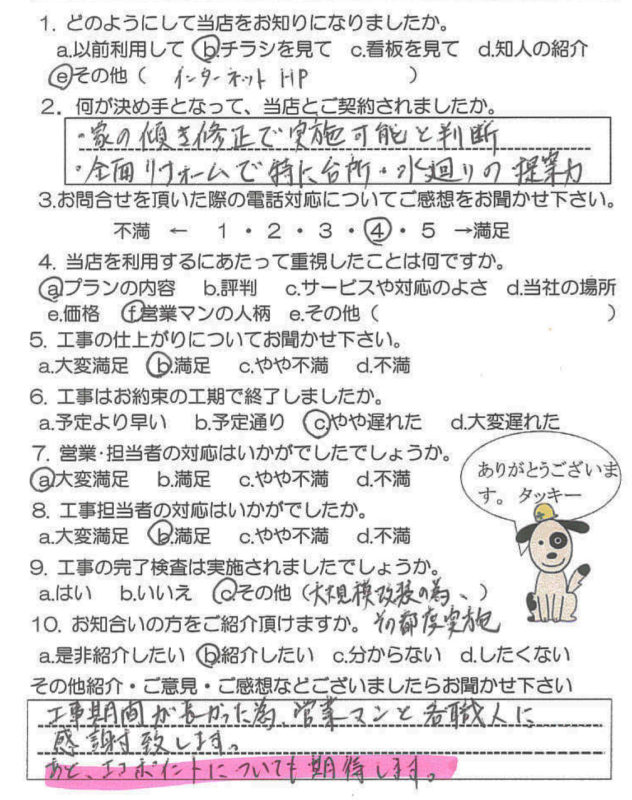 1. どのようにして当店をお知りになりましたか。
a.以前利用して b.チラシを見て c.看板を見て d.知人の紹介
e.その他( インターネット HP )
2. 何が決め手となって、当店とご契約されましたか。
・家の傾き修正で実施可能と判断
・全面リフォームで特に台所・水廻りの提案力
3.お問合せを頂いた際の電話対応についてご感想をお聞かせ下さい。
不満 ← 1 ・ 2 ・ 3 ・ 4 ・ 5 →満足
4. 当店を利用するにあたって重視したことは何ですか。
a.プランの内容 b.評判 c.サービスや対応のよさ d.当社の場所
e.価格 f.営業マンの人柄 e.その他( )
5. 工事の仕上がりについてお聞かせ下さい。
a.大変満足 b.満足 c.やや不満 d.不満
6. 工事はお約束の工期で終了しましたか。
a.予定より早い b.予定通り c.やや遅れた d.大変遅れた
7. 営業・担当者の対応はいかがでしたでしょうか。
a.大変満足 b.満足 c.やや不満 d.不満
ありがとうございま
す。 タッキー
8. 工事担当者の対応はいかがでしたか。
a.大変満足 b.満足 c.やや不満 d.不満
9. 工事の完了検査は実施されましたでしょうか。
a.はい b.いいえ c.その他(大規模改装の為、)
その都度実施
10. お知合いの方をご紹介頂けますか。
a.是非紹介したい b.紹介したい c.分からない d.したくない
その他紹介・ご意見・ご感想などございましたらお聞かせ下さい
工事期間が長かった為、営業マンと各職人に
感謝致します。
あと、エコポイントについても期待します。